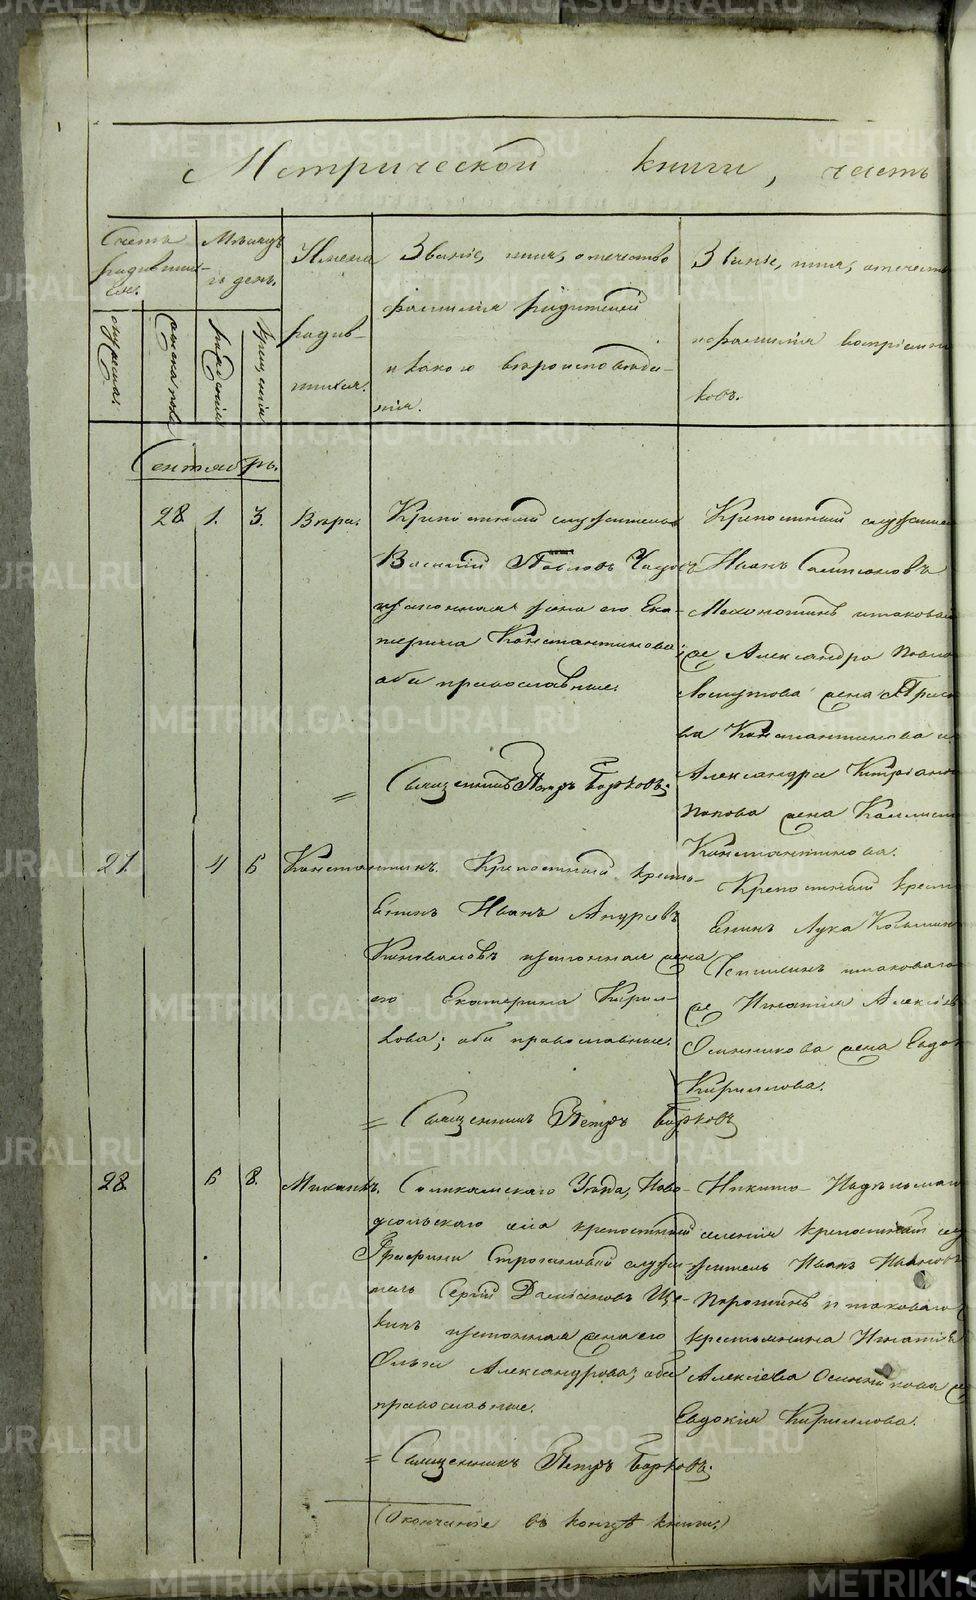 Метрической книги, часть
Счетъ родившихся.
Мѣсяцъ и день.
Имена родившихся.
Званіе, имя, отечество
фамилія родителей
и какого вѣроисповѣда-
нія.
Званіе, имя, отечеств
и фамилія воспріемни
ковъ.
мужеска.
женска пола
рожденія
крещенія
Сентябрь.
28 1. 3. Вѣра.
Крѣпостный служитель
Василій Павловъ
и законная жена его Ека-
терина Константинова;
оба православные.
Священникъ Петръ Борковъ.
Крѣпостный служител
Иванъ Сампсоновъ
и таковаго
же Александра Павло
жена
ва Константинова и
Александра
Попова жена
Константинова.
27. 4 6 Константинъ.
Крѣпостный кресть-
янинъ Иванъ
Коноваловъ и законная жена
его Екатерина Кирил-
лова; оба православные.
= Священникъ Петръ Борковъ
Крѣпостный кресть
янинъ Лука Козьминъ
и таковаго
же Игнатія Алексѣев
Осинникова жена Евдок
Кириллова.
28. 6 8. Михаилъ.
Соликамскаго Уѣзда, Ново-
усольскаго села крѣпостный
Графини Строгановой служи-
тель Сергій Даміановъ Ще-
кинъ и законная жена его
Ольга Александрова; оба
православные.
= Священникъ Петръ Борковъ.
Никито-
селенія крѣпостный слу
житель Иванъ Ивановъ
Порошинъ и таковаго
крестьянина Игнатія
Алексѣева Осинникова же
Евдокія Кириллова.
(Окончаніе въ концѣ книги.)
METRIKI.GASO-URAL.RU